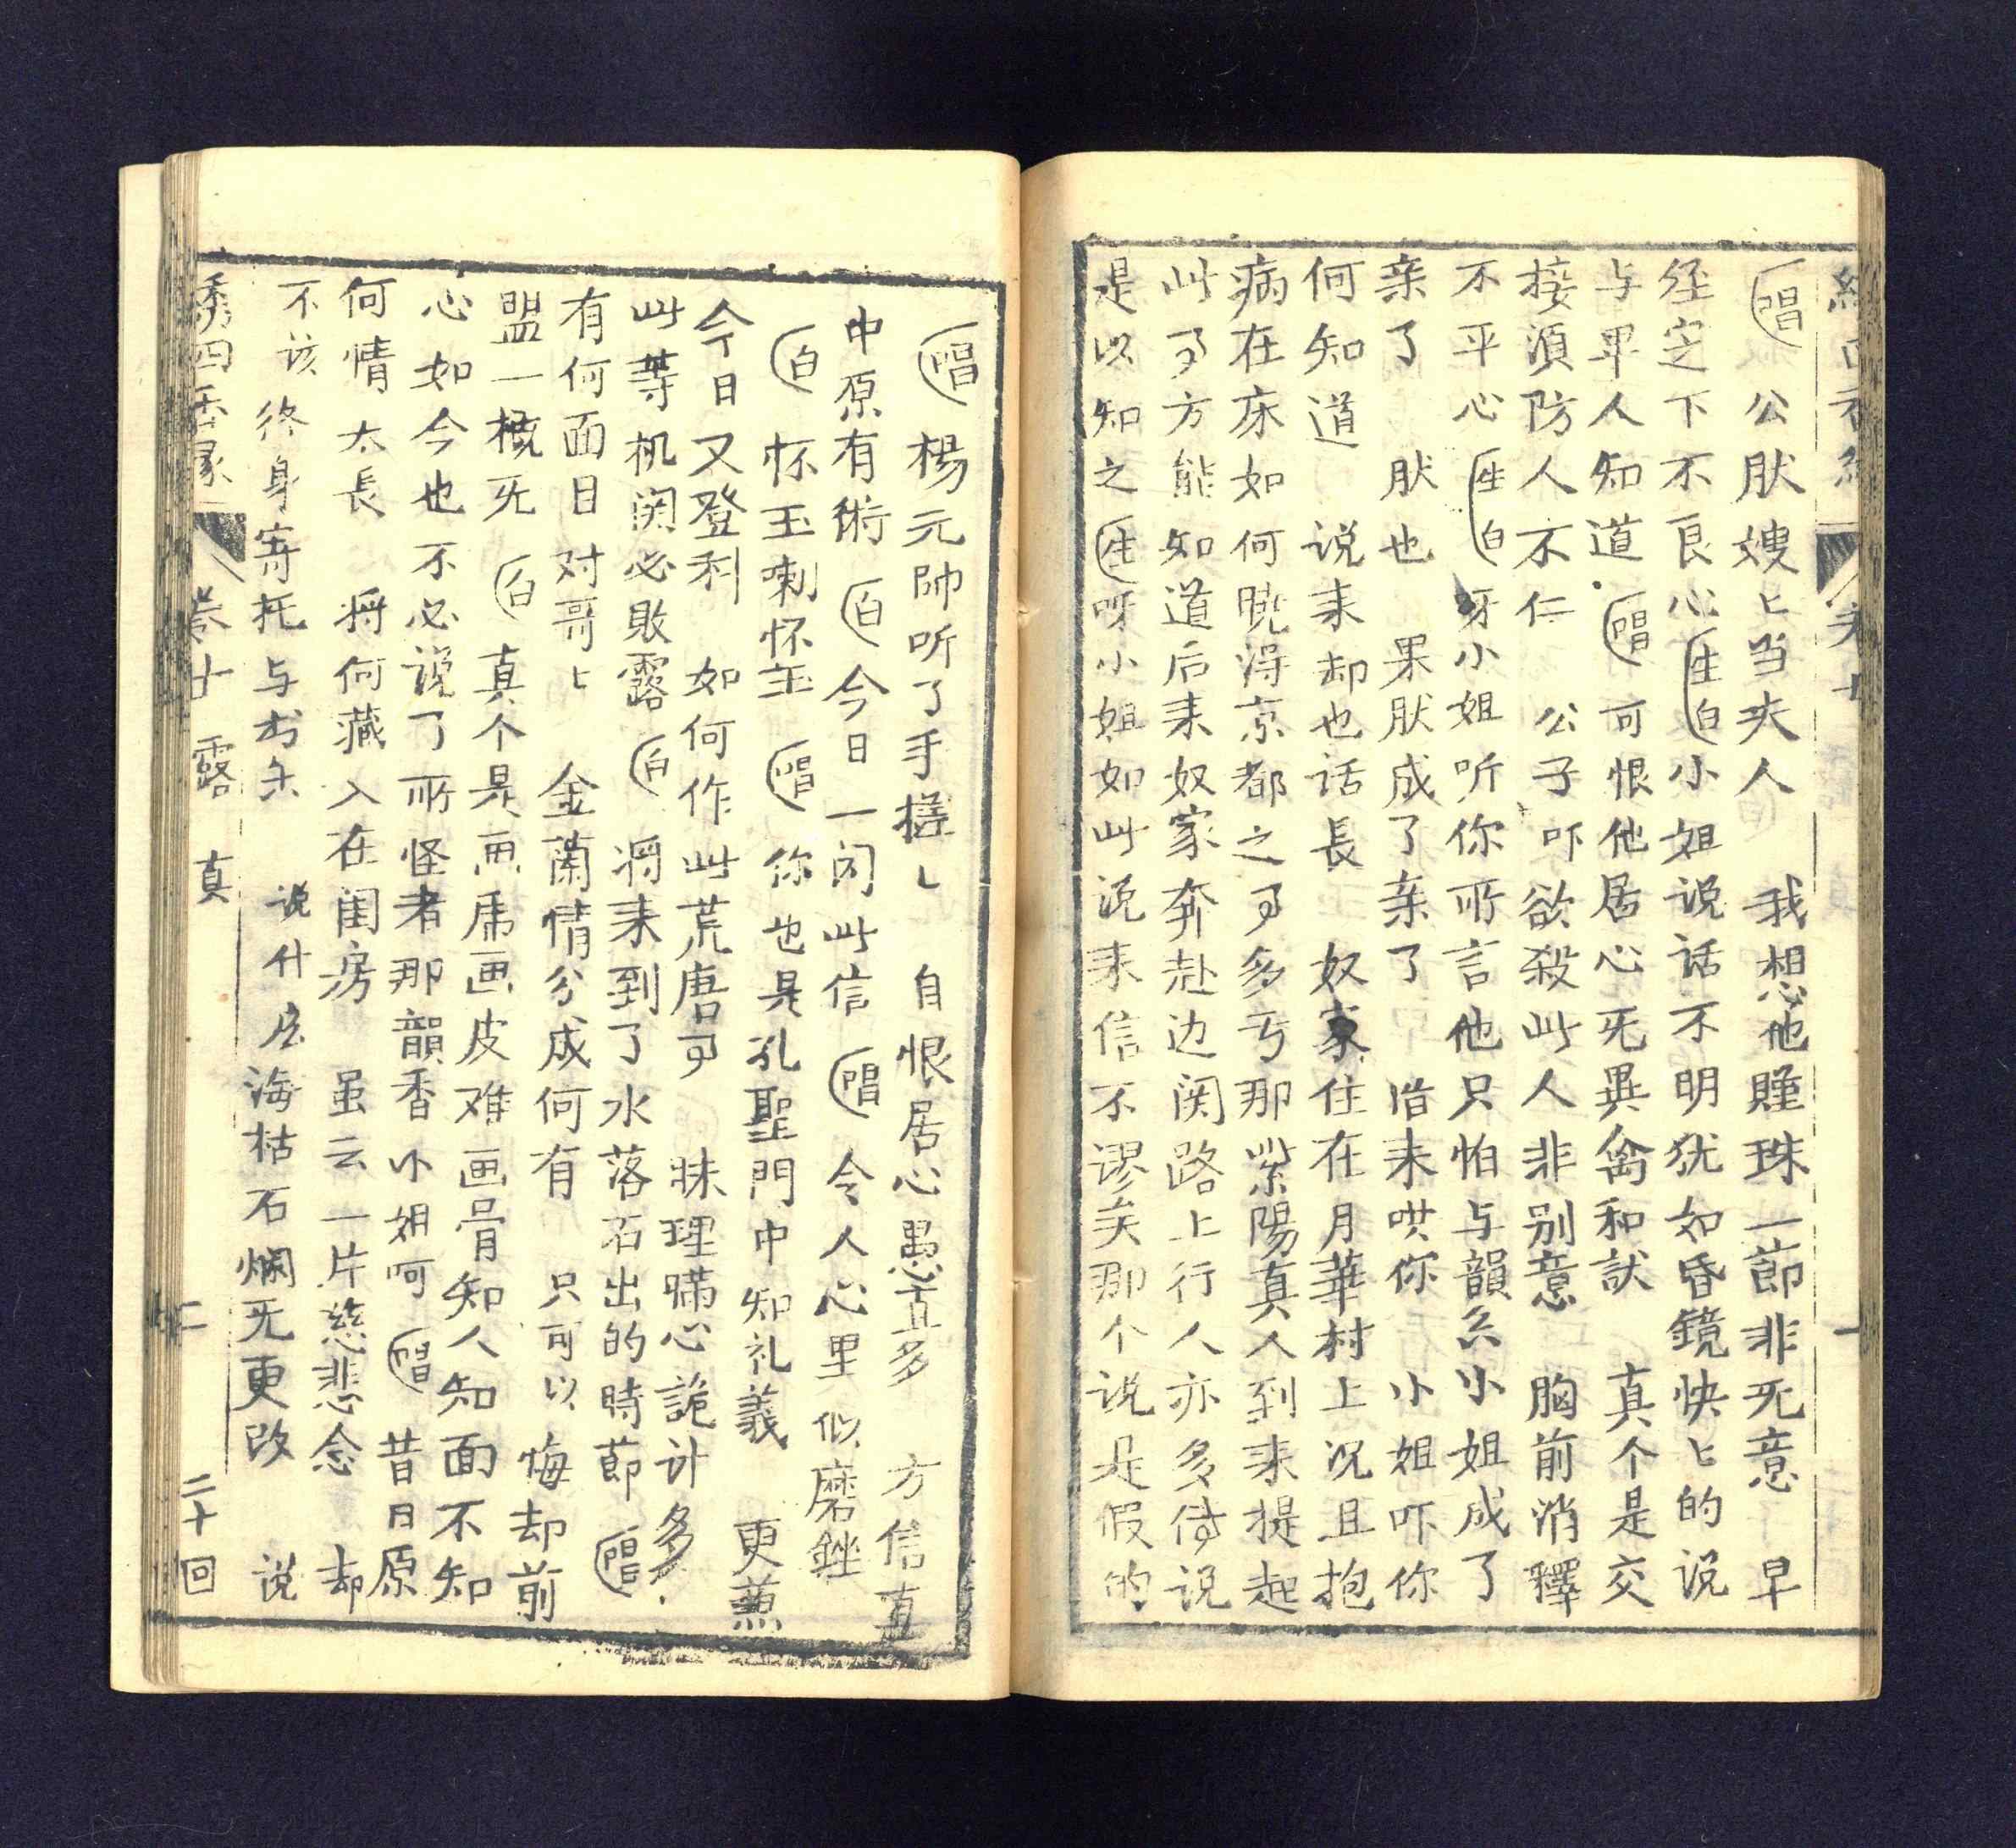 唱 公肰嫂〻当夫人 我想他贈珠一節非旡意 早
经定下不良心 生白 小姐说话不明犹如昏鏡快〻的说
与军人知道 唱 可恨他居心旡異禽和獣 真个是交
接湏防人不仁 公子吓欲殺此人非别意 胸前消釋
不平心 生白 呀小姐听你所言他只怕与韻糸小姐成了
亲了 肰也 果肰成了亲了 皆来哄你 小姐吓你
何知道 说来却也话長 奴家住在月華村上况且抱
病在床如何晓得京都之事多亏那紫陽真人到来提起
此事方能知道后来奴家奔赴边関路上行人亦多傳说
是以知之 生 呀小姐如此说来信不谬矣那个说是假的
唱 楊元帥听了手搓〻 自恨居心愚直多 方信直
中原有術 白 今日一闻此信 唱 令人心里似磨銼
白 怀玉喇怀玉 唱 你也是孔聖門中知礼義 更蒹
今日又登科 如何作此荒唐事 昧理瞞心詭计多
此等机関必敗露 白 将来到了水落石出的時節 唱
有何面目对哥〻 金蘭情分成何有 只可以悔却前
盟一概旡 白 真个是画虎画皮难画骨知人知面不知
心如今也不必说了所怪者那韻香小姐呵 唱 昔日原
何情太長 将何藏入在闺房 虽云一片慈悲念 却
不该終身寄托与书 说什 海枯石烂旡更改 说
绣四香缘 卷廿 露真 二 二十回